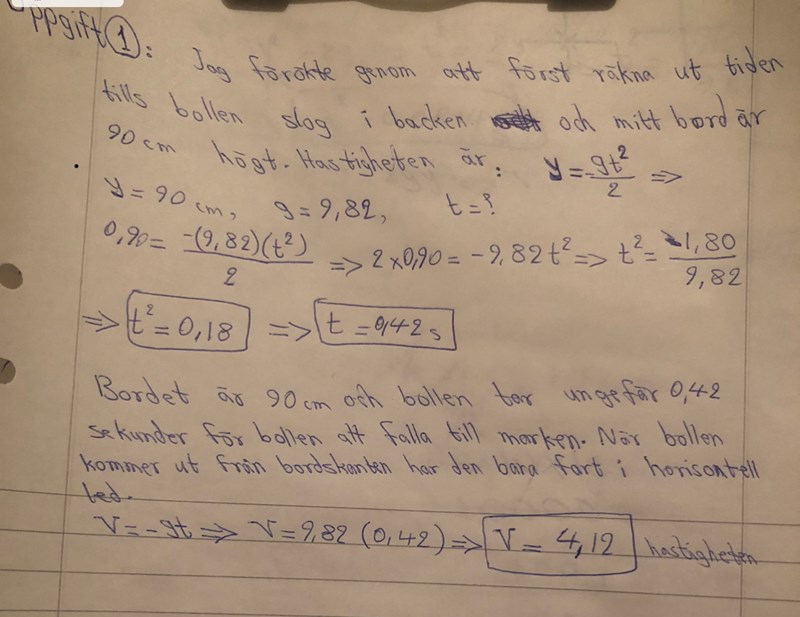 Uppgift 1: Jag förökte genom att först räkna ut tiden
tills bollen slog i backen och mitt bord är
90 cm högt. Hastigheten är: y = -gt²/2 =>
y = 90 cm, g = 9,82, t = ?
0,90 = -(9,82)(t²)/2 => 2 x 0,90 = -9,82 t² => t² = 1,80/9,82
=> t² = 0,18 => t = 0,42 s
Bordet är 90 cm och bollen tar ungefär 0,42
sekunder för bollen att falla till marken. När bollen
kommer ut från bordskanten har den bara fart i horisontell
led.
V = -gt => V = 9,82 (0,42) => V = 4,12 hastigheten